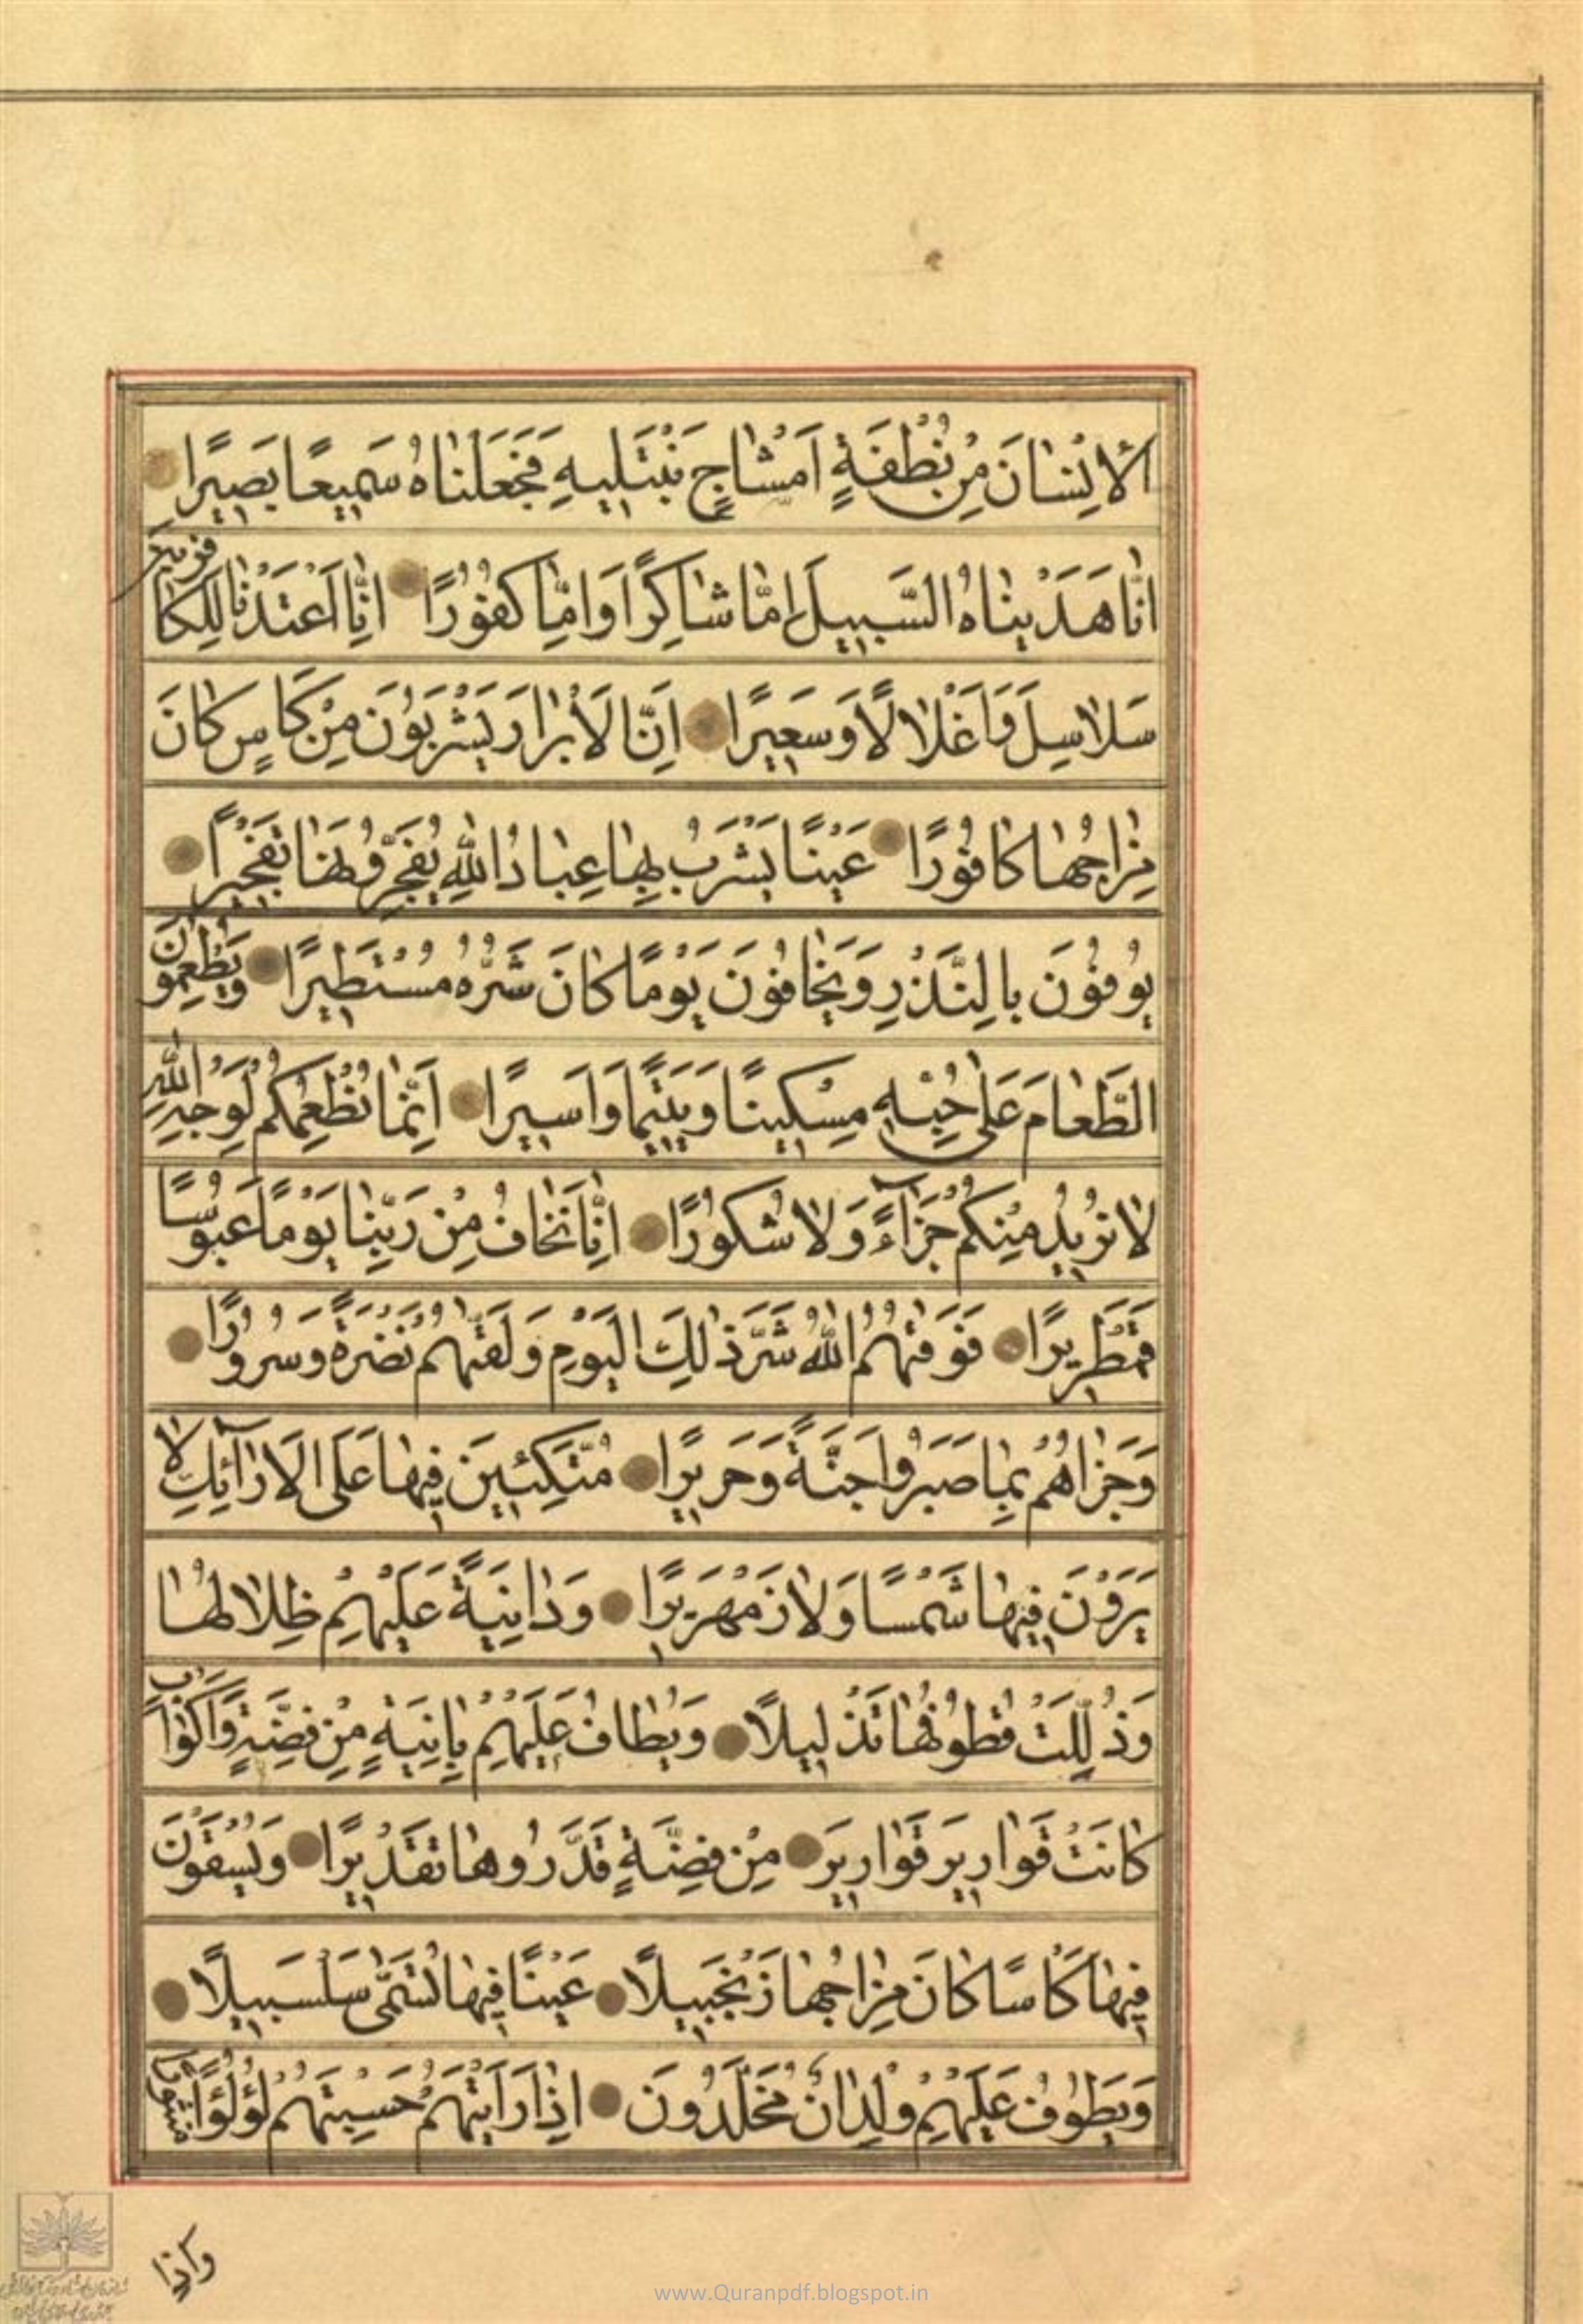 الْاِنْسٰانَ مِنْ نُطْفَةٍ اَمْشٰاجٍ نَبْتَلِيهِ فَجَعَلْنٰاهُ سَمِيعًا بَصِيرًا
اِنّٰا هَدَيْنٰاهُ السَّبِيلَ اِمّٰا شٰاكِرًا وَاِمّٰا كَفُورًا اِنّٰا اَعْتَدْنٰا لِلْكٰافِرِينَ
سَلٰاسِلَ وَاَغْلٰالًا وَسَعِيرًا اِنَّ الْاَبْرٰارَ يَشْرَبُونَ مِنْ كَاْسٍ كٰانَ
مِزٰاجُهٰا كٰافُورًا عَيْنًا يَشْرَبُ بِهٰا عِبٰادُ اللّٰهِ يُفَجِّرُونَهٰا تَفْجِيرًا
يُوفُونَ بِالنَّذْرِ وَيَخٰافُونَ يَوْمًا كٰانَ شَرُّهُ مُسْتَطِيرًا وَيُطْعِمُونَ
الطَّعٰامَ عَلٰى حُبِّهِ مِسْكِينًا وَيَتِيمًا وَاَسِيرًا اِنَّمٰا نُطْعِمُكُمْ لِوَجْهِ اللّٰهِ
لٰا نُرِيدُ مِنْكُمْ جَزٰآءً وَلٰا شُكُورًا اِنّٰا نَخٰافُ مِنْ رَبِّنٰا يَوْمًا عَبُوسًا
قَمْطَرِيرًا فَوَقٰيهُمُ اللّٰهُ شَرَّ ذٰلِكَ الْيَوْمِ وَلَقّٰيهُمْ نَضْرَةً وَسُرُورًا
وَجَزٰاهُمْ بِمٰا صَبَرُوا جَنَّةً وَحَرِيرًا مُتَّكِئِينَ فِيهٰا عَلَى الْاَرٰآئِكِ لٰا
يَرَوْنَ فِيهٰا شَمْسًا وَلٰا زَمْهَرِيرًا وَدٰانِيَةً عَلَيْهِمْ ظِلٰالُهٰا
وَذُلِّلَتْ قُطُوفُهٰا تَذْلِيلًا وَيُطٰافُ عَلَيْهِمْ بِاٰنِيَةٍ مِنْ فِضَّةٍ وَاَكْوٰابٍ
كٰانَتْ قَوٰارِيرَ قَوٰارِيرَ مِنْ فِضَّةٍ قَدَّرُوهٰا تَقْدِيرًا وَيُسْقَوْنَ
فِيهٰا كَاْسًا كٰانَ مِزٰاجُهٰا زَنْجَبِيلًا عَيْنًا فِيهٰا تُسَمّٰى سَلْسَبِيلًا
وَيَطُوفُ عَلَيْهِمْ وِلْدٰانٌ مُخَلَّدُونَ اِذٰا رَاَيْتَهُمْ حَسِبْتَهُمْ لُؤْلُؤًا مَنْثُورًا
وَاِذٰا
www.Quranpdf.blogspot.in